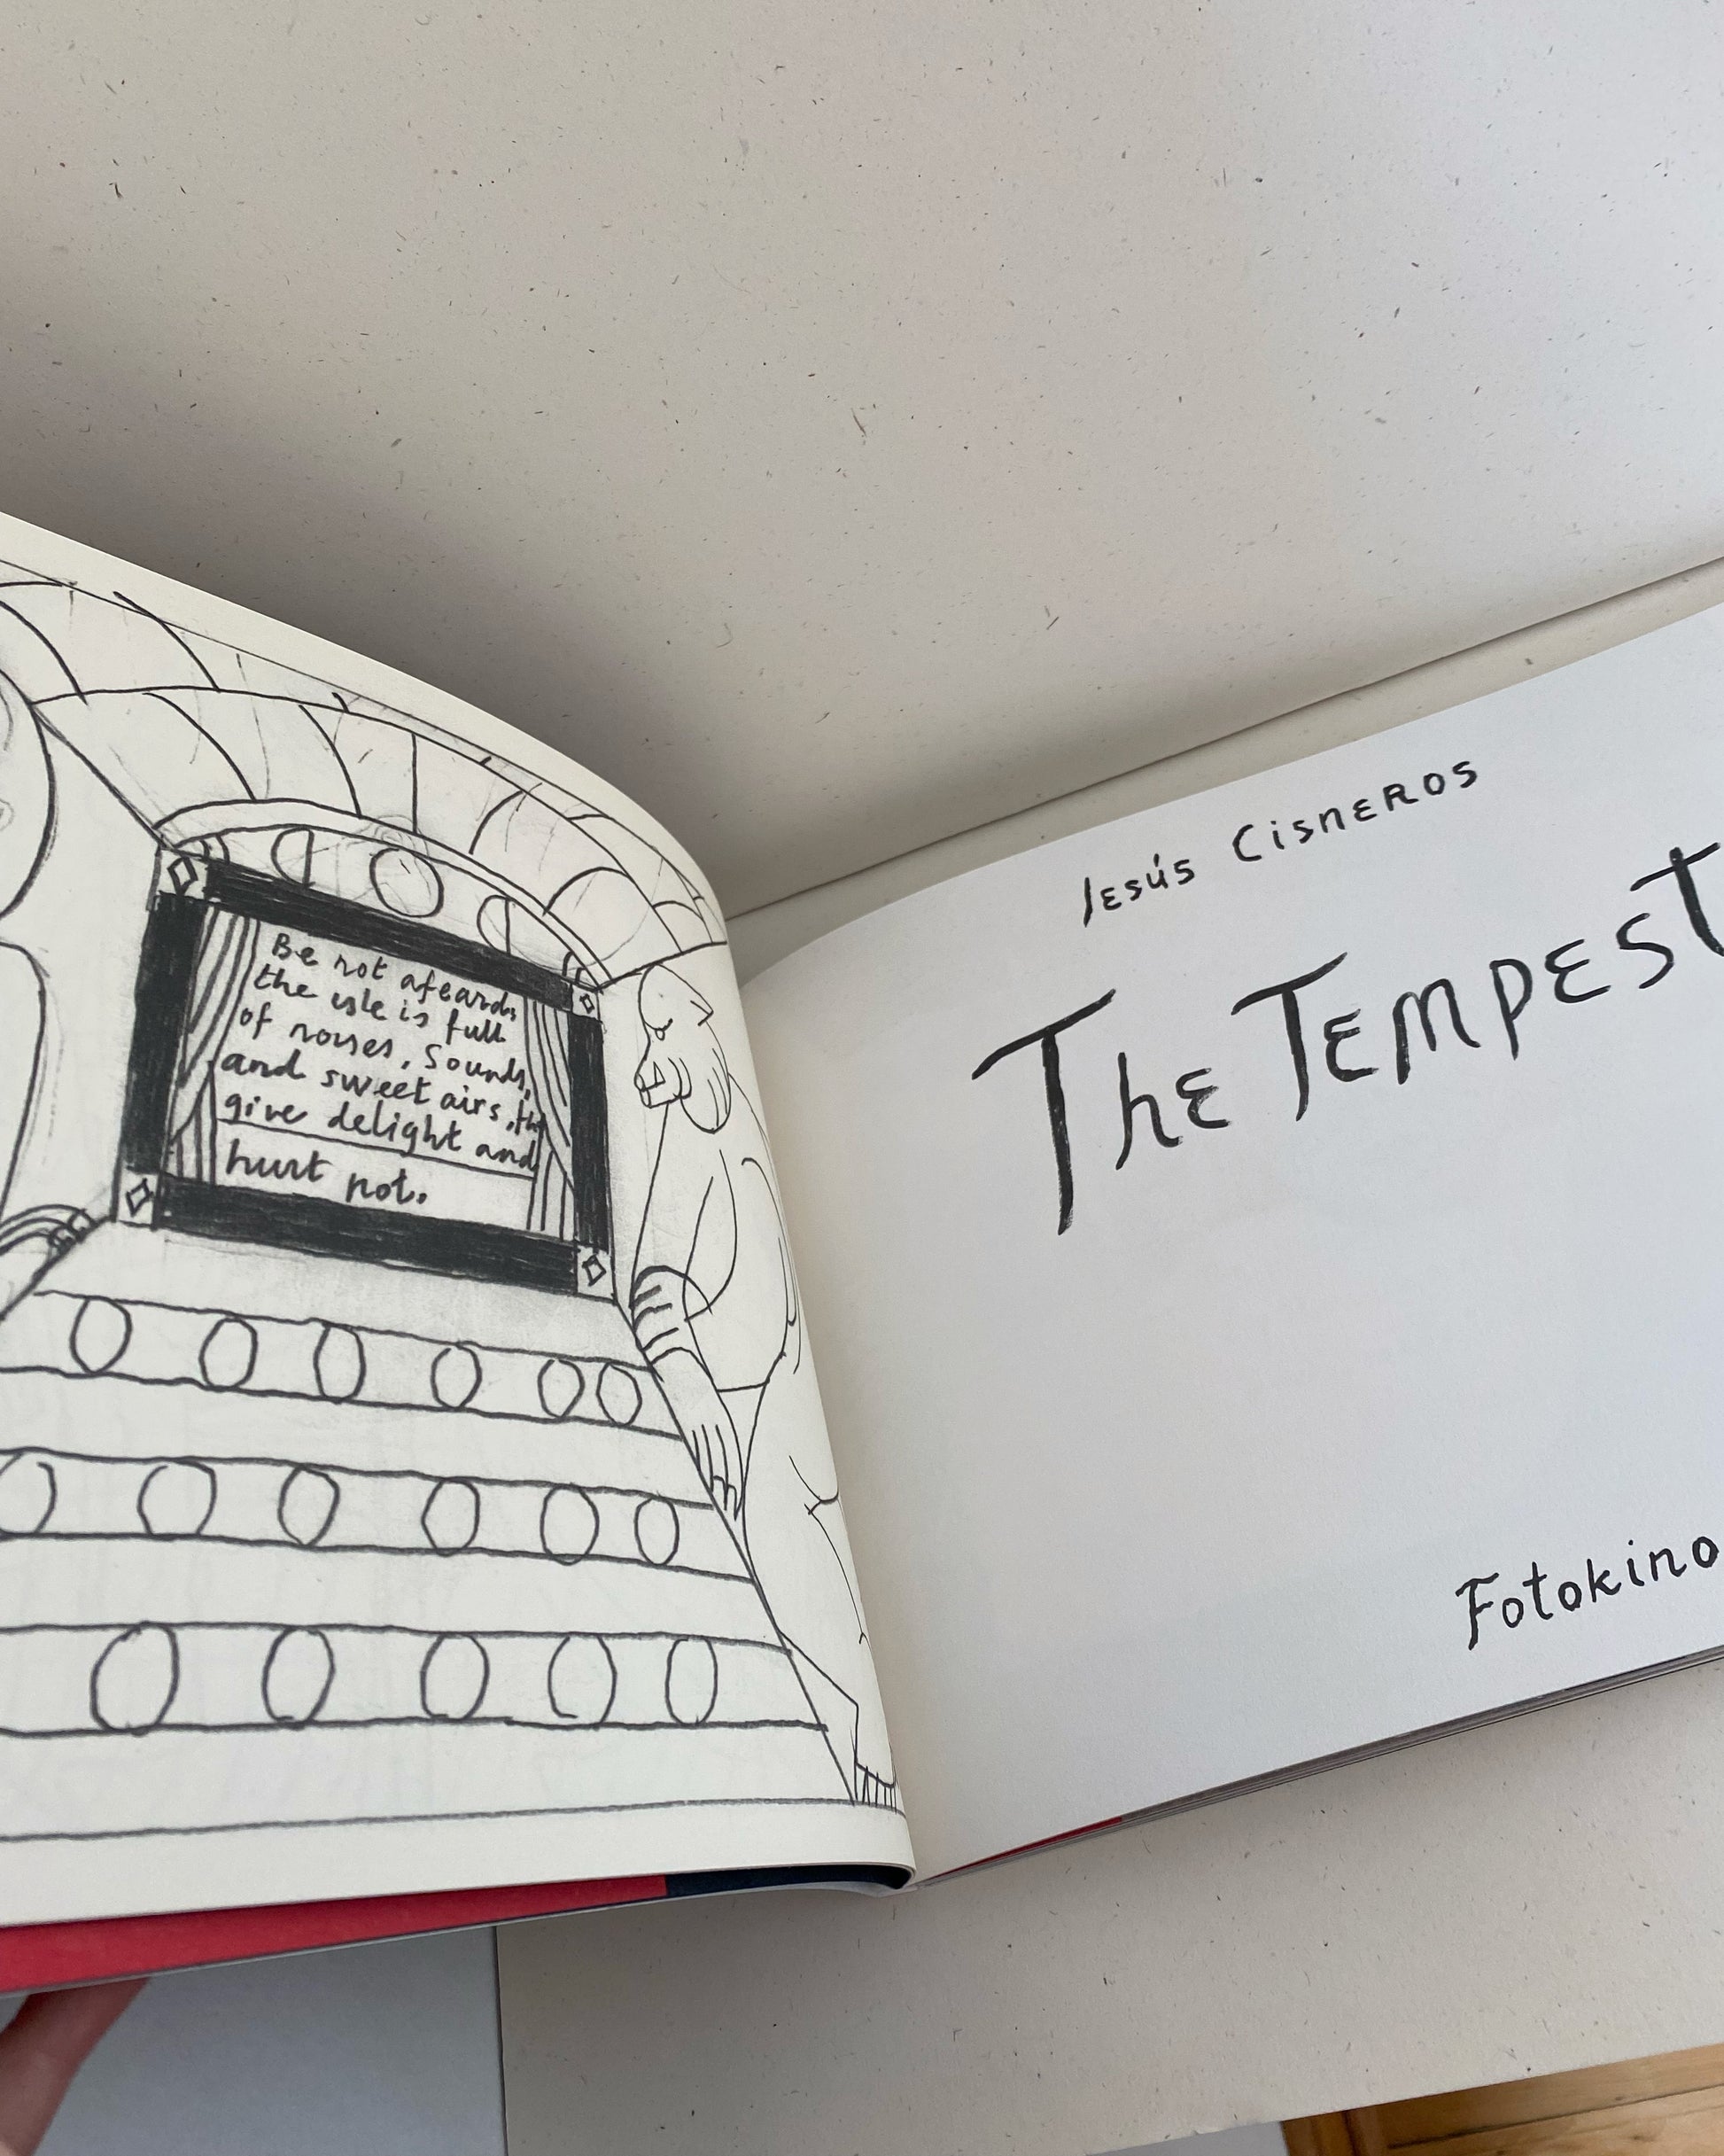 Be not afeard;
the isle is full
of noises, sounds,
and sweet airs, th
give delight and
hurt not.
Jesús Cisneros
The Tempest
Fotokino